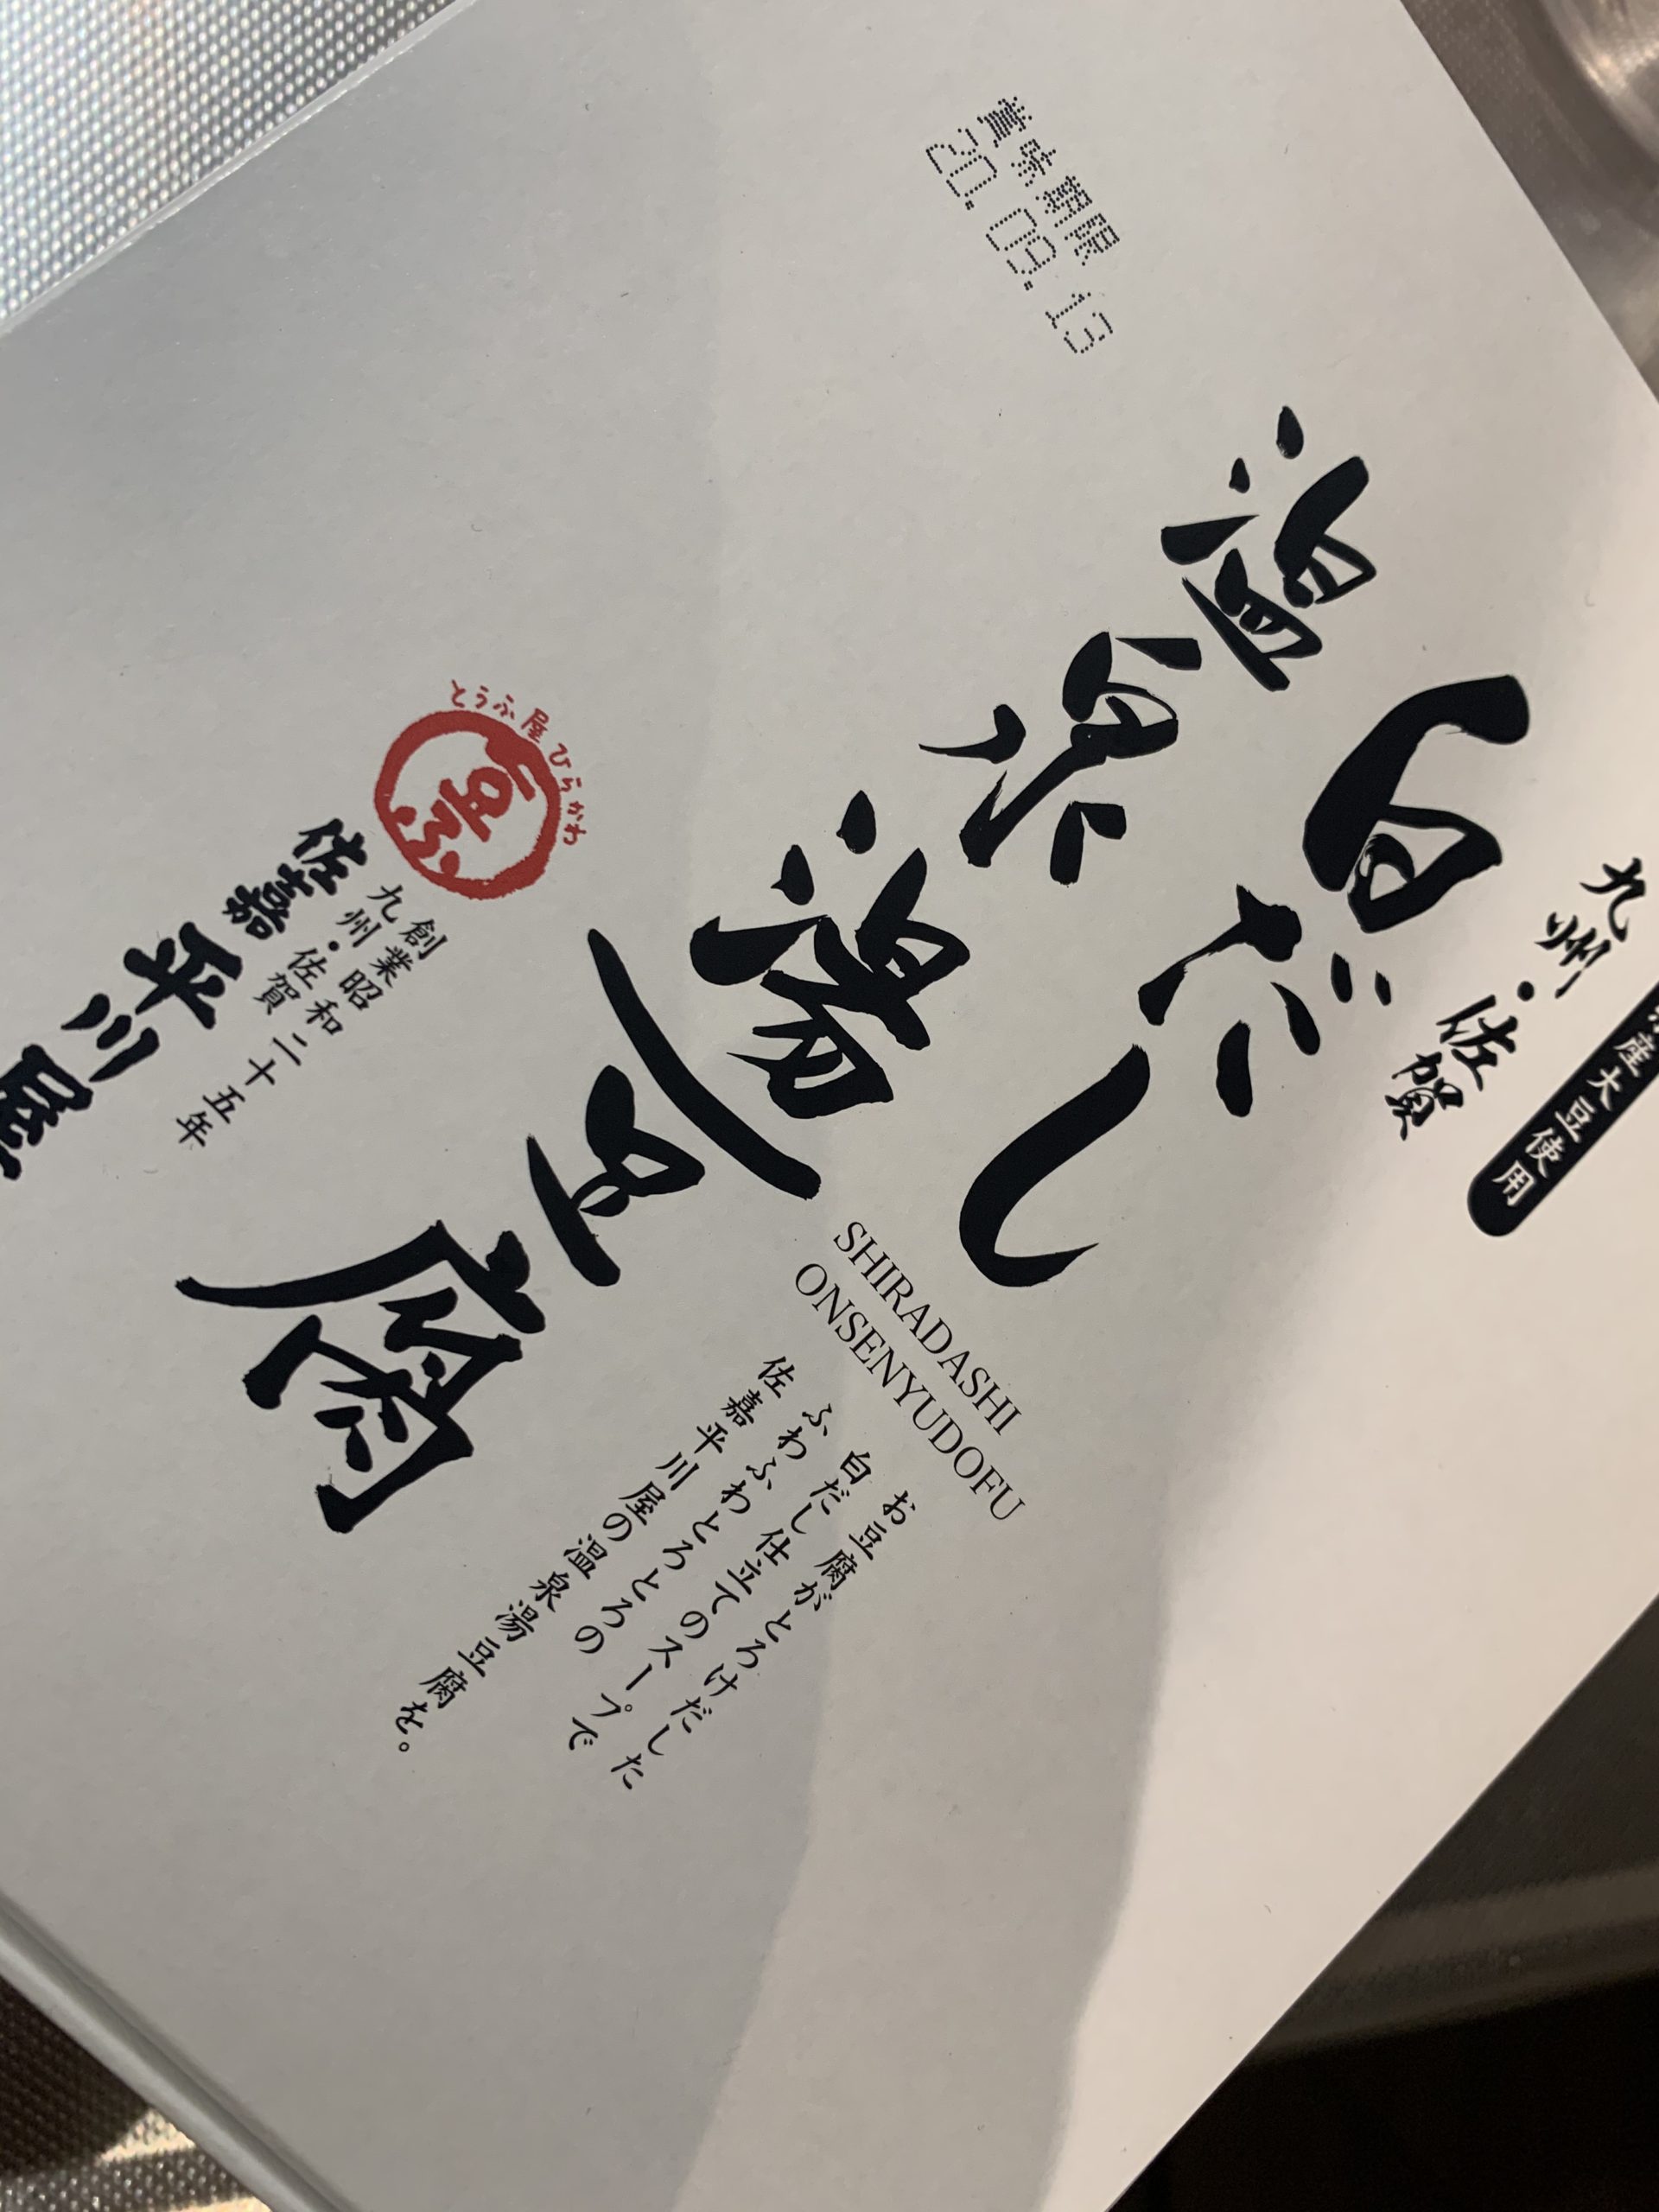 賞味期限
20.09.13
産大豆使用
九州・佐賀
白だし
温泉湯豆腐
SHIRADASHI
ONSENYUDOFU
お豆腐がとろけだした
白だし仕立てのスープで
ふわふわとろとろの
佐嘉平川屋の温泉湯豆腐を。
とうふ屋ひらかわ
豆ふ
創業昭和二十五年
九州・佐賀
佐嘉平川屋